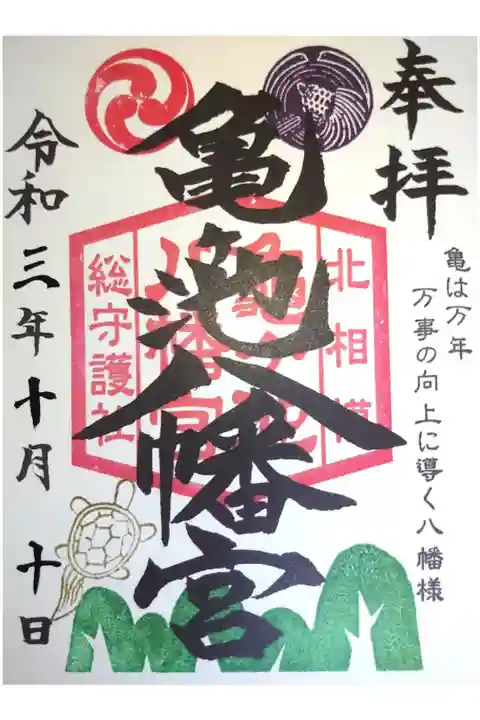 奉拝
亀は万年
万事の向上に導く八幡様
亀ヶ池八幡宮
北相模
亀ヶ池
八幡宮
総守護社
令和三年十月十日